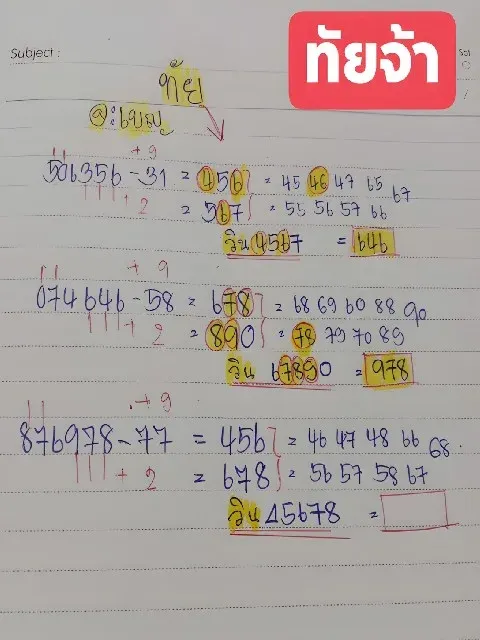 Subject :
ทัยจ้า
ทัย
อ.เบญ
+ 9
506356 - 31 = 456 } = 45 46 47 65 67
+ 2 = 567 } = 55 56 57 66
วิน 4567 = 646
+ 9
074646 - 58 = 678 } = 68 69 60 88 90
+ 2 = 890 } = 78 79 70 89
วิน 67890 = 978
+ 9
876978 - 77 = 456 } = 46 47 48 66 68
+ 2 = 678 } = 56 57 58 67
วิน 45678 =